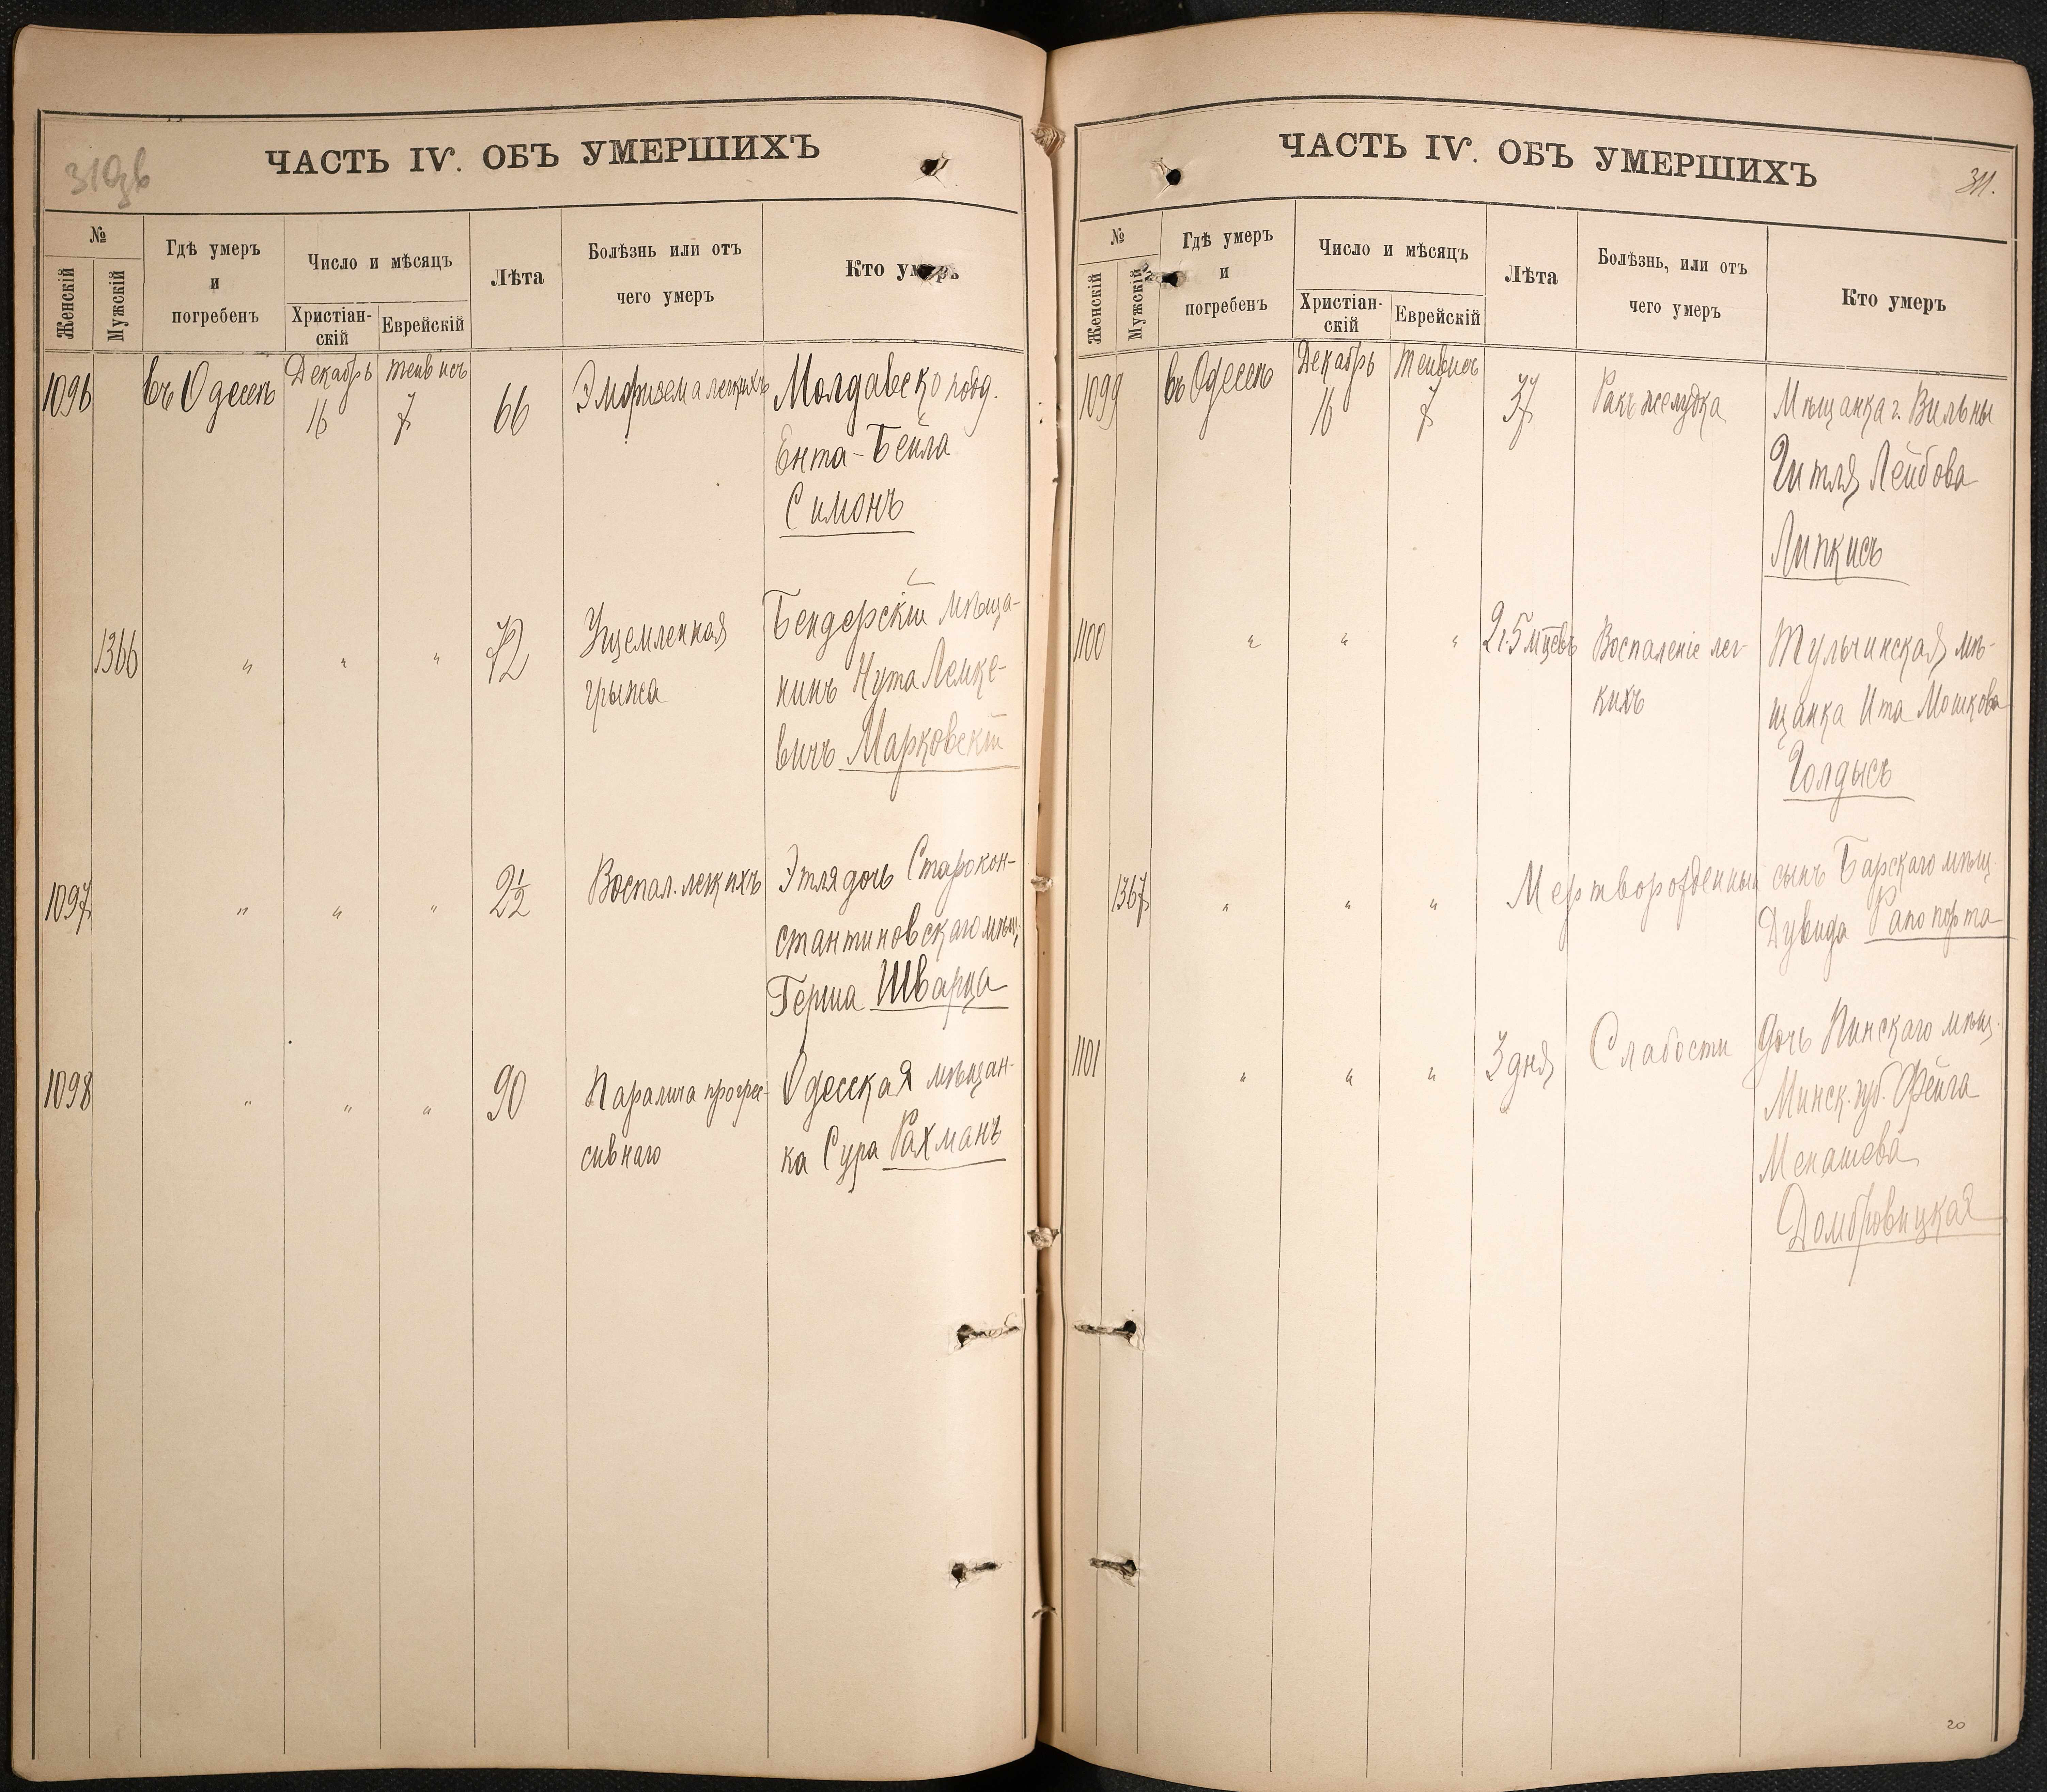 310зв
ЧАСТЬ IV. ОБЪ УМЕРШИХЪ
№
Женскій
Мужскій
Гдѣ умеръ
и
погребенъ
Число и мѣсяцъ
Христіан-
скій
Еврейскій
Лѣта
Болѣзнь или отъ
чего умеръ
Кто умеръ
1096
въ Одессѣ
Декабрь
16
Тейвисъ
7
66
Эмфизема легкихъ
Молдавско подд.
Ента-Бейла
Симонъ
1366
"
"
"
72
Ущемленная
грыжа
Бендерскій мѣща-
нинъ Нута Лемке-
вичъ Марковскій
1097
"
"
"
2½
Воспал. легкихъ
Этля дочь Старокон-
стантиновскаго мѣщ.
Герша Шварца
1098
"
"
"
90
Паралича прогрес-
сивнаго
Одесская мѣщан-
ка Сура Рахманъ
ЧАСТЬ IV. ОБЪ УМЕРШИХЪ
311.
№
Женскій
Мужскій
Гдѣ умеръ
и
погребенъ
Число и мѣсяцъ
Христіан-
скій
Еврейскій
Лѣта
Болѣзнь, или отъ
чего умеръ
Кто умеръ
1099
въ Одессѣ
Декабрь
16
Тейвисъ
7
37
Ракъ желудка
Мѣщанка г. Вильны
Гитля Лейбова
Липкисъ
1100
"
"
"
2 г. 5 мцевъ
Воспаленіе лег-
кихъ
Тульчинская мѣ-
щанка Ита Мошкова
Голдысъ
1367
"
"
"
Мертворожденный сынъ Барскаго мѣщ.
Дувида Рапопорта
1101
"
"
"
3 дня
Слабости
Дочь Пинскаго мѣщ.
Минск. губ. Фейга
Менашева
Домбровицкая
20